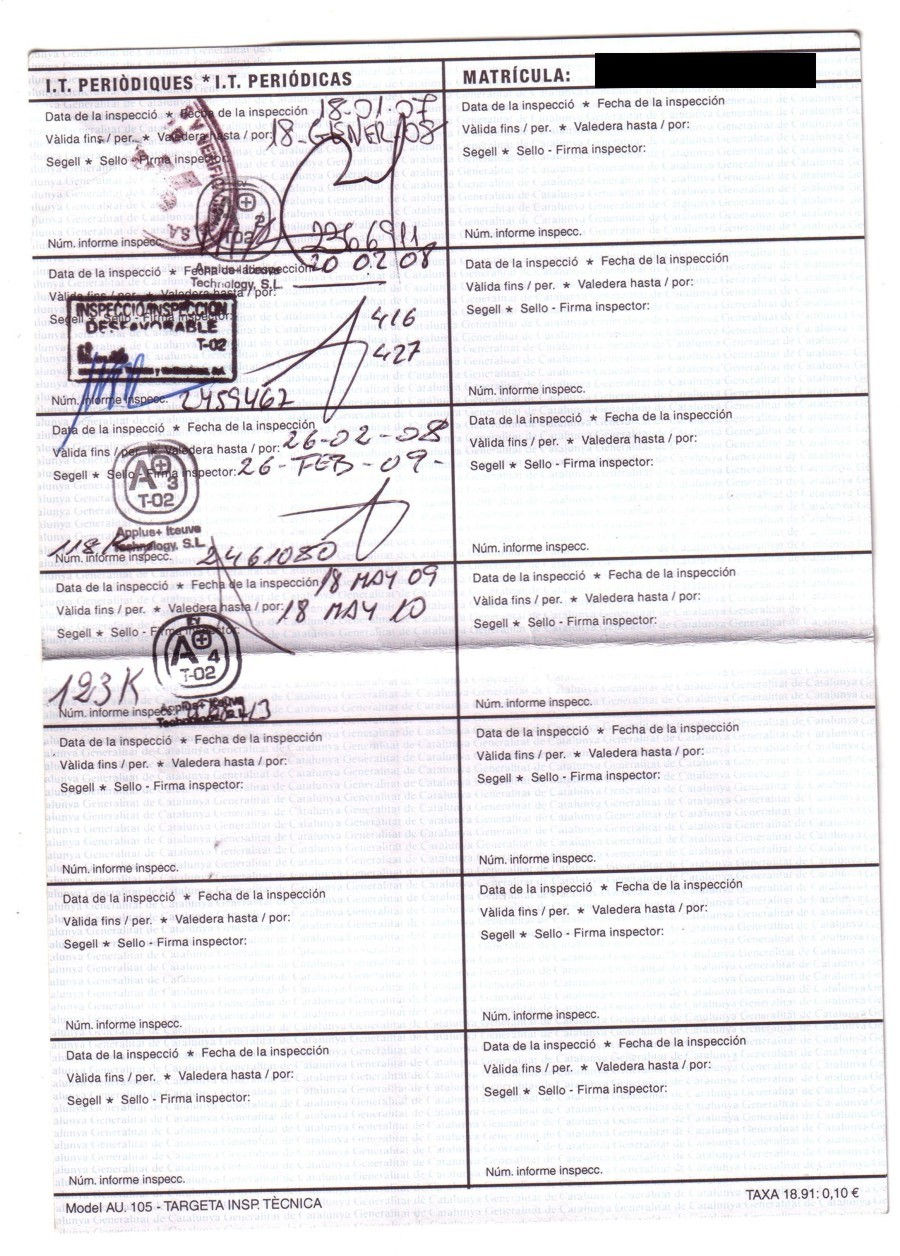 I.T. PERIÒDIQUES * I.T. PERIÓDICAS
MATRÍCULA:
Data de la inspecció * Fecha de la inspección 18-01-07
Vàlida fins / per. * Valedera hasta / por: 18-GENER-08
Segell * Sello - Firma inspector:
Núm. informe inspecc. 2366911
Applus+ Iteuve
Technology, S.L.
Data de la inspecció * Fecha de la inspección 20 02 08
Vàlida fins / per. * Valedera hasta / por:
Segell * Sello - Firma inspector:
INSPECCIÓ INSPECCIÓN
DESFAVORABLE
T-02
416
427
Núm. informe inspecc. 2459462
Data de la inspecció * Fecha de la inspección
Vàlida fins / per. * Valedera hasta / por: 26-02-08
Segell * Sello - Firma inspector: 26-FEB-09-
A+ 3
T-02
Applus+ Iteuve
Technology, S.L.
118K
Núm. informe inspecc. 2461080
Data de la inspecció * Fecha de la inspección 18 MAY 09
Vàlida fins / per. * Valedera hasta / por: 18 MAY 10
Segell * Sello - Firma inspector:
A+ 4
T-02
123K
Núm. informe inspecc.
Applus+ Iteuve
Technology, S.L.
Data de la inspecció * Fecha de la inspección
Vàlida fins / per. * Valedera hasta / por:
Segell * Sello - Firma inspector:
Núm. informe inspecc.
Data de la inspecció * Fecha de la inspección
Vàlida fins / per. * Valedera hasta / por:
Segell * Sello - Firma inspector:
Núm. informe inspecc.
Data de la inspecció * Fecha de la inspección
Vàlida fins / per. * Valedera hasta / por:
Segell * Sello - Firma inspector:
Núm. informe inspecc.
Data de la inspecció * Fecha de la inspección
Vàlida fins / per. * Valedera hasta / por:
Segell * Sello - Firma inspector:
Núm. informe inspecc.
Data de la inspecció * Fecha de la inspección
Vàlida fins / per. * Valedera hasta / por:
Segell * Sello - Firma inspector:
Núm. informe inspecc.
Data de la inspecció * Fecha de la inspección
Vàlida fins / per. * Valedera hasta / por:
Segell * Sello - Firma inspector:
Núm. informe inspecc.
Data de la inspecció * Fecha de la inspección
Vàlida fins / per. * Valedera hasta / por:
Segell * Sello - Firma inspector:
Núm. informe inspecc.
Data de la inspecció * Fecha de la inspección
Vàlida fins / per. * Valedera hasta / por:
Segell * Sello - Firma inspector:
Núm. informe inspecc.
Data de la inspecció * Fecha de la inspección
Vàlida fins / per. * Valedera hasta / por:
Segell * Sello - Firma inspector:
Núm. informe inspecc.
Data de la inspecció * Fecha de la inspección
Vàlida fins / per. * Valedera hasta / por:
Segell * Sello - Firma inspector:
Núm. informe inspecc.
Model AU. 105 - TARGETA INSP. TÈCNICA
TAXA 18.91: 0,10 €